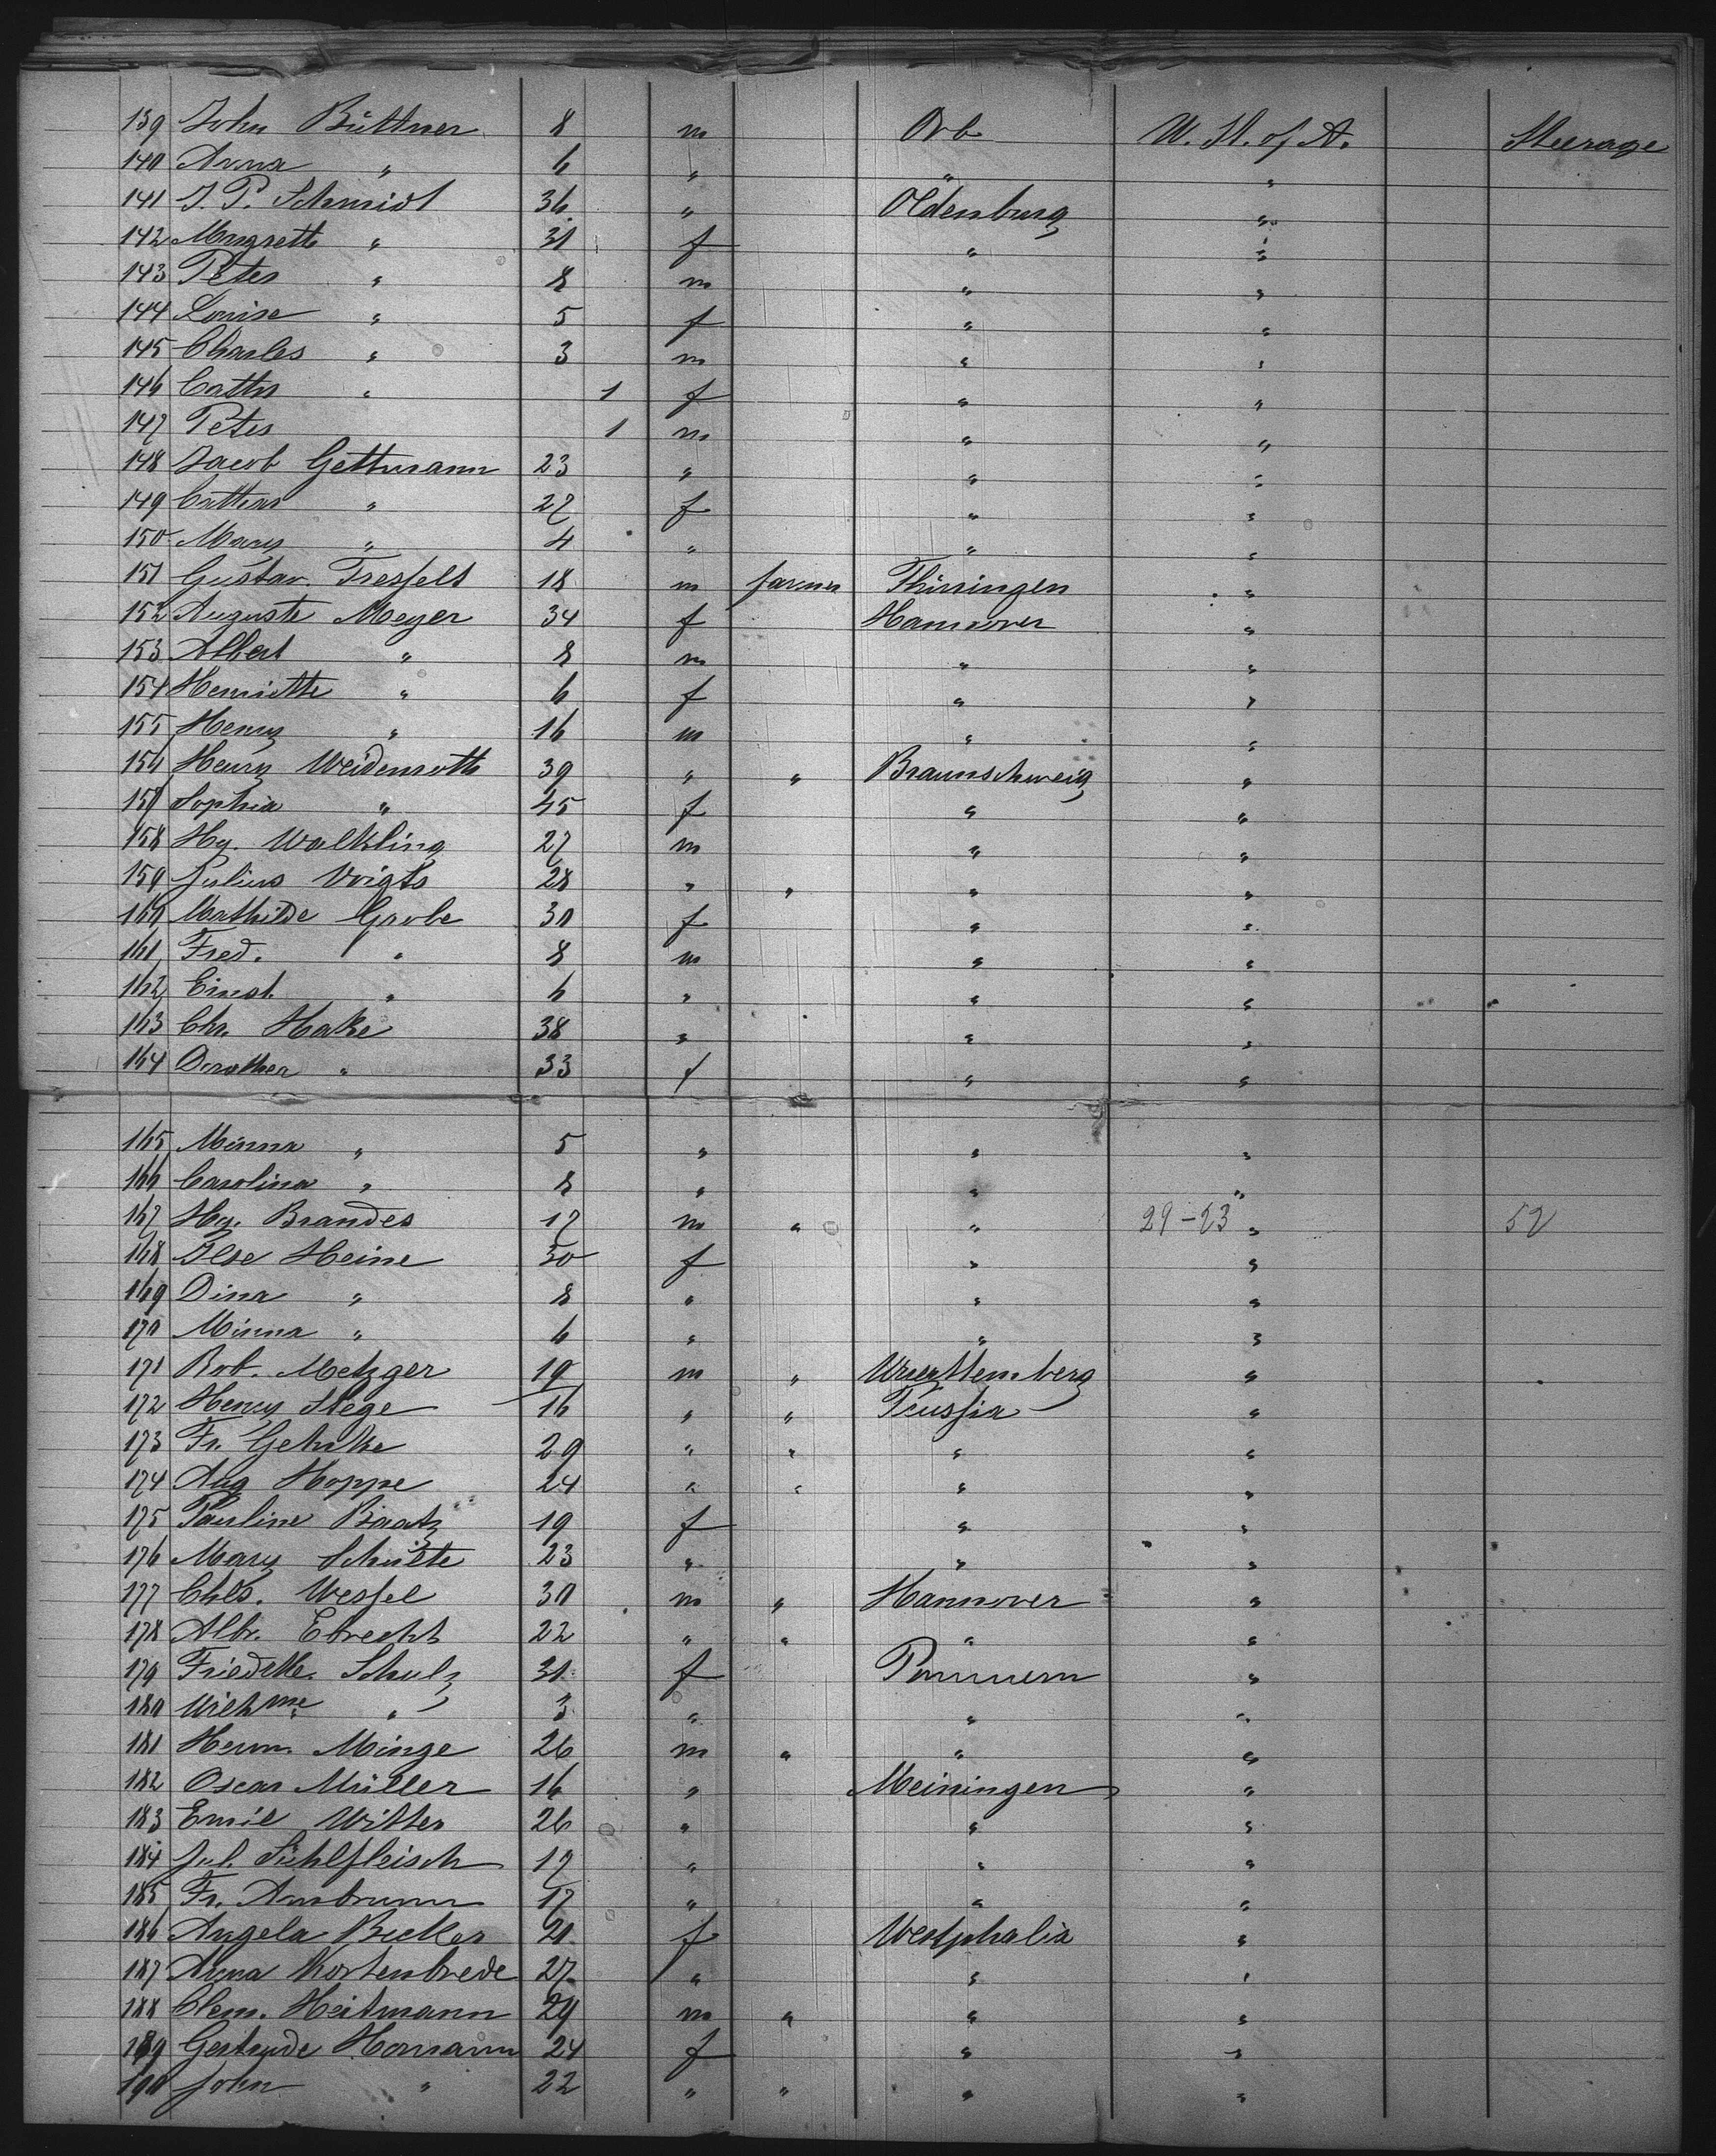 139 John Büttner 8 m Orb U. St. of A. Steerage
140 Anna " 6 " " "
141 J. P. Schmidt 36 " Oldenburg "
142 Margreth " 31 f " "
143 Peter " 8 m " "
144 Louise " 5 f " "
145 Charles " 3 m " "
146 Cathr " 1 f " "
147 Peter 1 m " "
148 Jacob Gettmann 23 " " "
149 " 27 f " "
150 Mary " 4 " " "
151 Gustav. Tresselt 18 m farmer Thüringen "
152 Auguste Meyer 34 f Hannover "
153 Albert " 8 m " "
154 Henriette " 6 f " "
155 Henry " 16 m " "
156 Henry Weidenroth 39 " " Braunschweig "
157 Sophia " 45 f " "
158 Hy. Walkling 27 m " "
159 Julius Voigts 28 " " " "
160 Mathilde Grobe 30 f " "
161 Fred. " 8 m " "
162 Ernst " 6 " " "
163 Chr. Hake 38 " " "
164 Dorothea " 33 f " "
165 Minna " 5 " " "
166 Carolina " 8 " " "
167 Hy. Brandes 17 m " " 29-23 " 52
168 Ilse Heine 30 f " "
169 Dina " 8 " " "
170 Minna " 6 " " "
171 Rob. Metzger 19 m " Wuerttemberg "
172 Henry Stege 16 " " Prussia "
173 Fr. Gehrke 29 " " " "
174 Aug. Hoppe 24 " " " "
175 Pauline Baatz 19 f " "
176 Mary Schulte 23 " " "
177 Chls. Wessel 30 m " Hannover "
178 Albr. Ebrecht 22 " " " "
179 Friedke. Schulz 31 f Pommern "
180 Wilhme. " 3 " " "
181 Herm. Minge 26 m " " "
182 Oscar Müller 16 " Meiningen "
183 Emil Witter 26 " " "
184 Jul. Sühlfleisch 17 " " "
185 Fr. Ambrunn 17 " " "
186 Angela Becker 21 f Westphalia "
187 Anna Kortenbrede 27 " " "
188 Clem. Heitmann 29 m " " "
189 Gertrude Homann 24 f " "
190 John " 22 " " " "